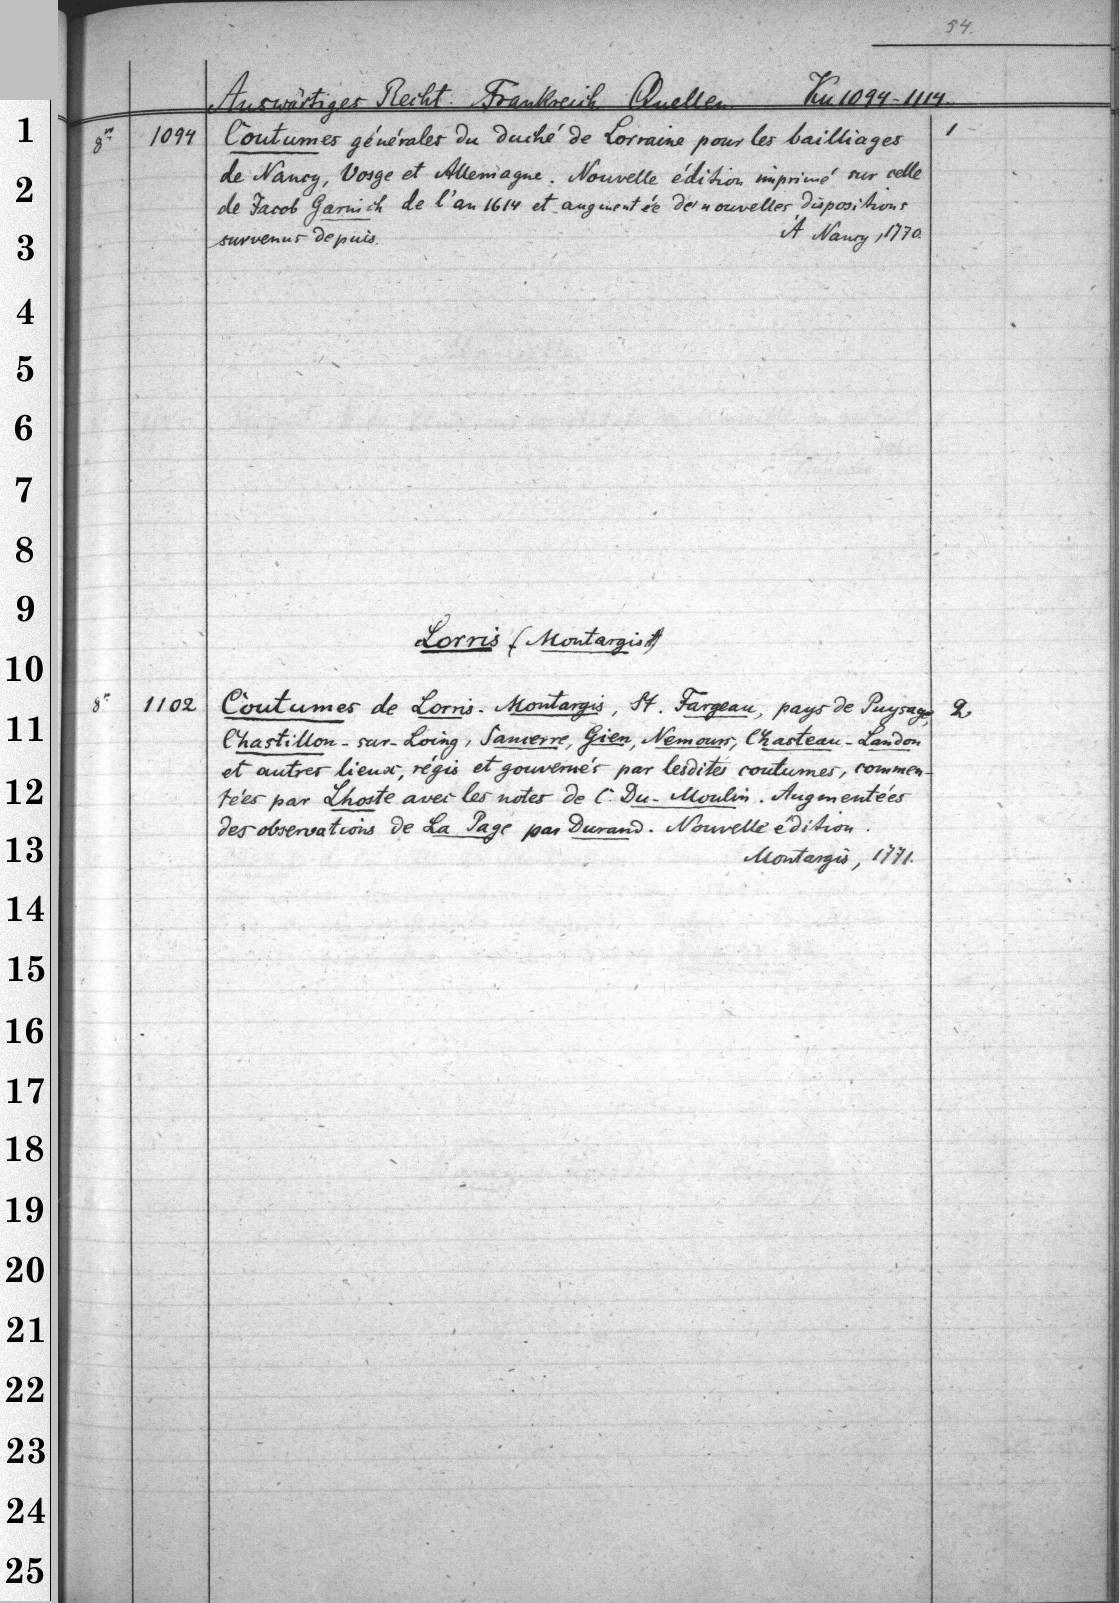 54.
Auswärtiges Recht. Frankreich. Quellen. Ku 1094-1114.
1
8° 1094 Coutumes générales du duché de Lorraine pour les bailliages 1
2
de Nancy, Vosge et Allemagne. Nouvelle édition imprimé sur celle
de Jacob Garnich de l'an 1614 et augmentée de nouvelles dispositions
3
survenus depuis. À Nancy, 1770.
4
5
6
7
8
9
Lorris (Montargis)
10
8° 1102 Coutumes de Lorris-Montargis, St. Fargeau, pays de Puysaye, 2
11
Chastillon-sur-Loing, Sancerre, Gien, Nemours, Chasteau-Landon
et autres lieux, régis et gouvernés par lesdites coutumes, commen-
12
tées par Lhoste avec les notes de C. Du-Moulin. Augmentées
des observations de La Page par Durand. Nouvelle édition.
13
Montargis, 1771.
14
15
16
17
18
19
20
21
22
23
24
25